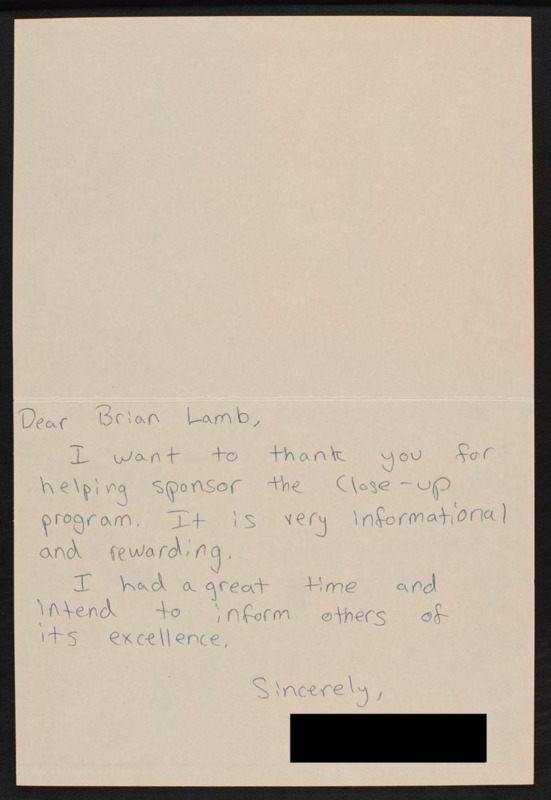 Dear Brian Lamb,
I want to thank you for
helping sponsor the Close-up
program. It is very informational
and rewarding.
I had a great time and
intend to inform others of
its excellence.
Sincerely,